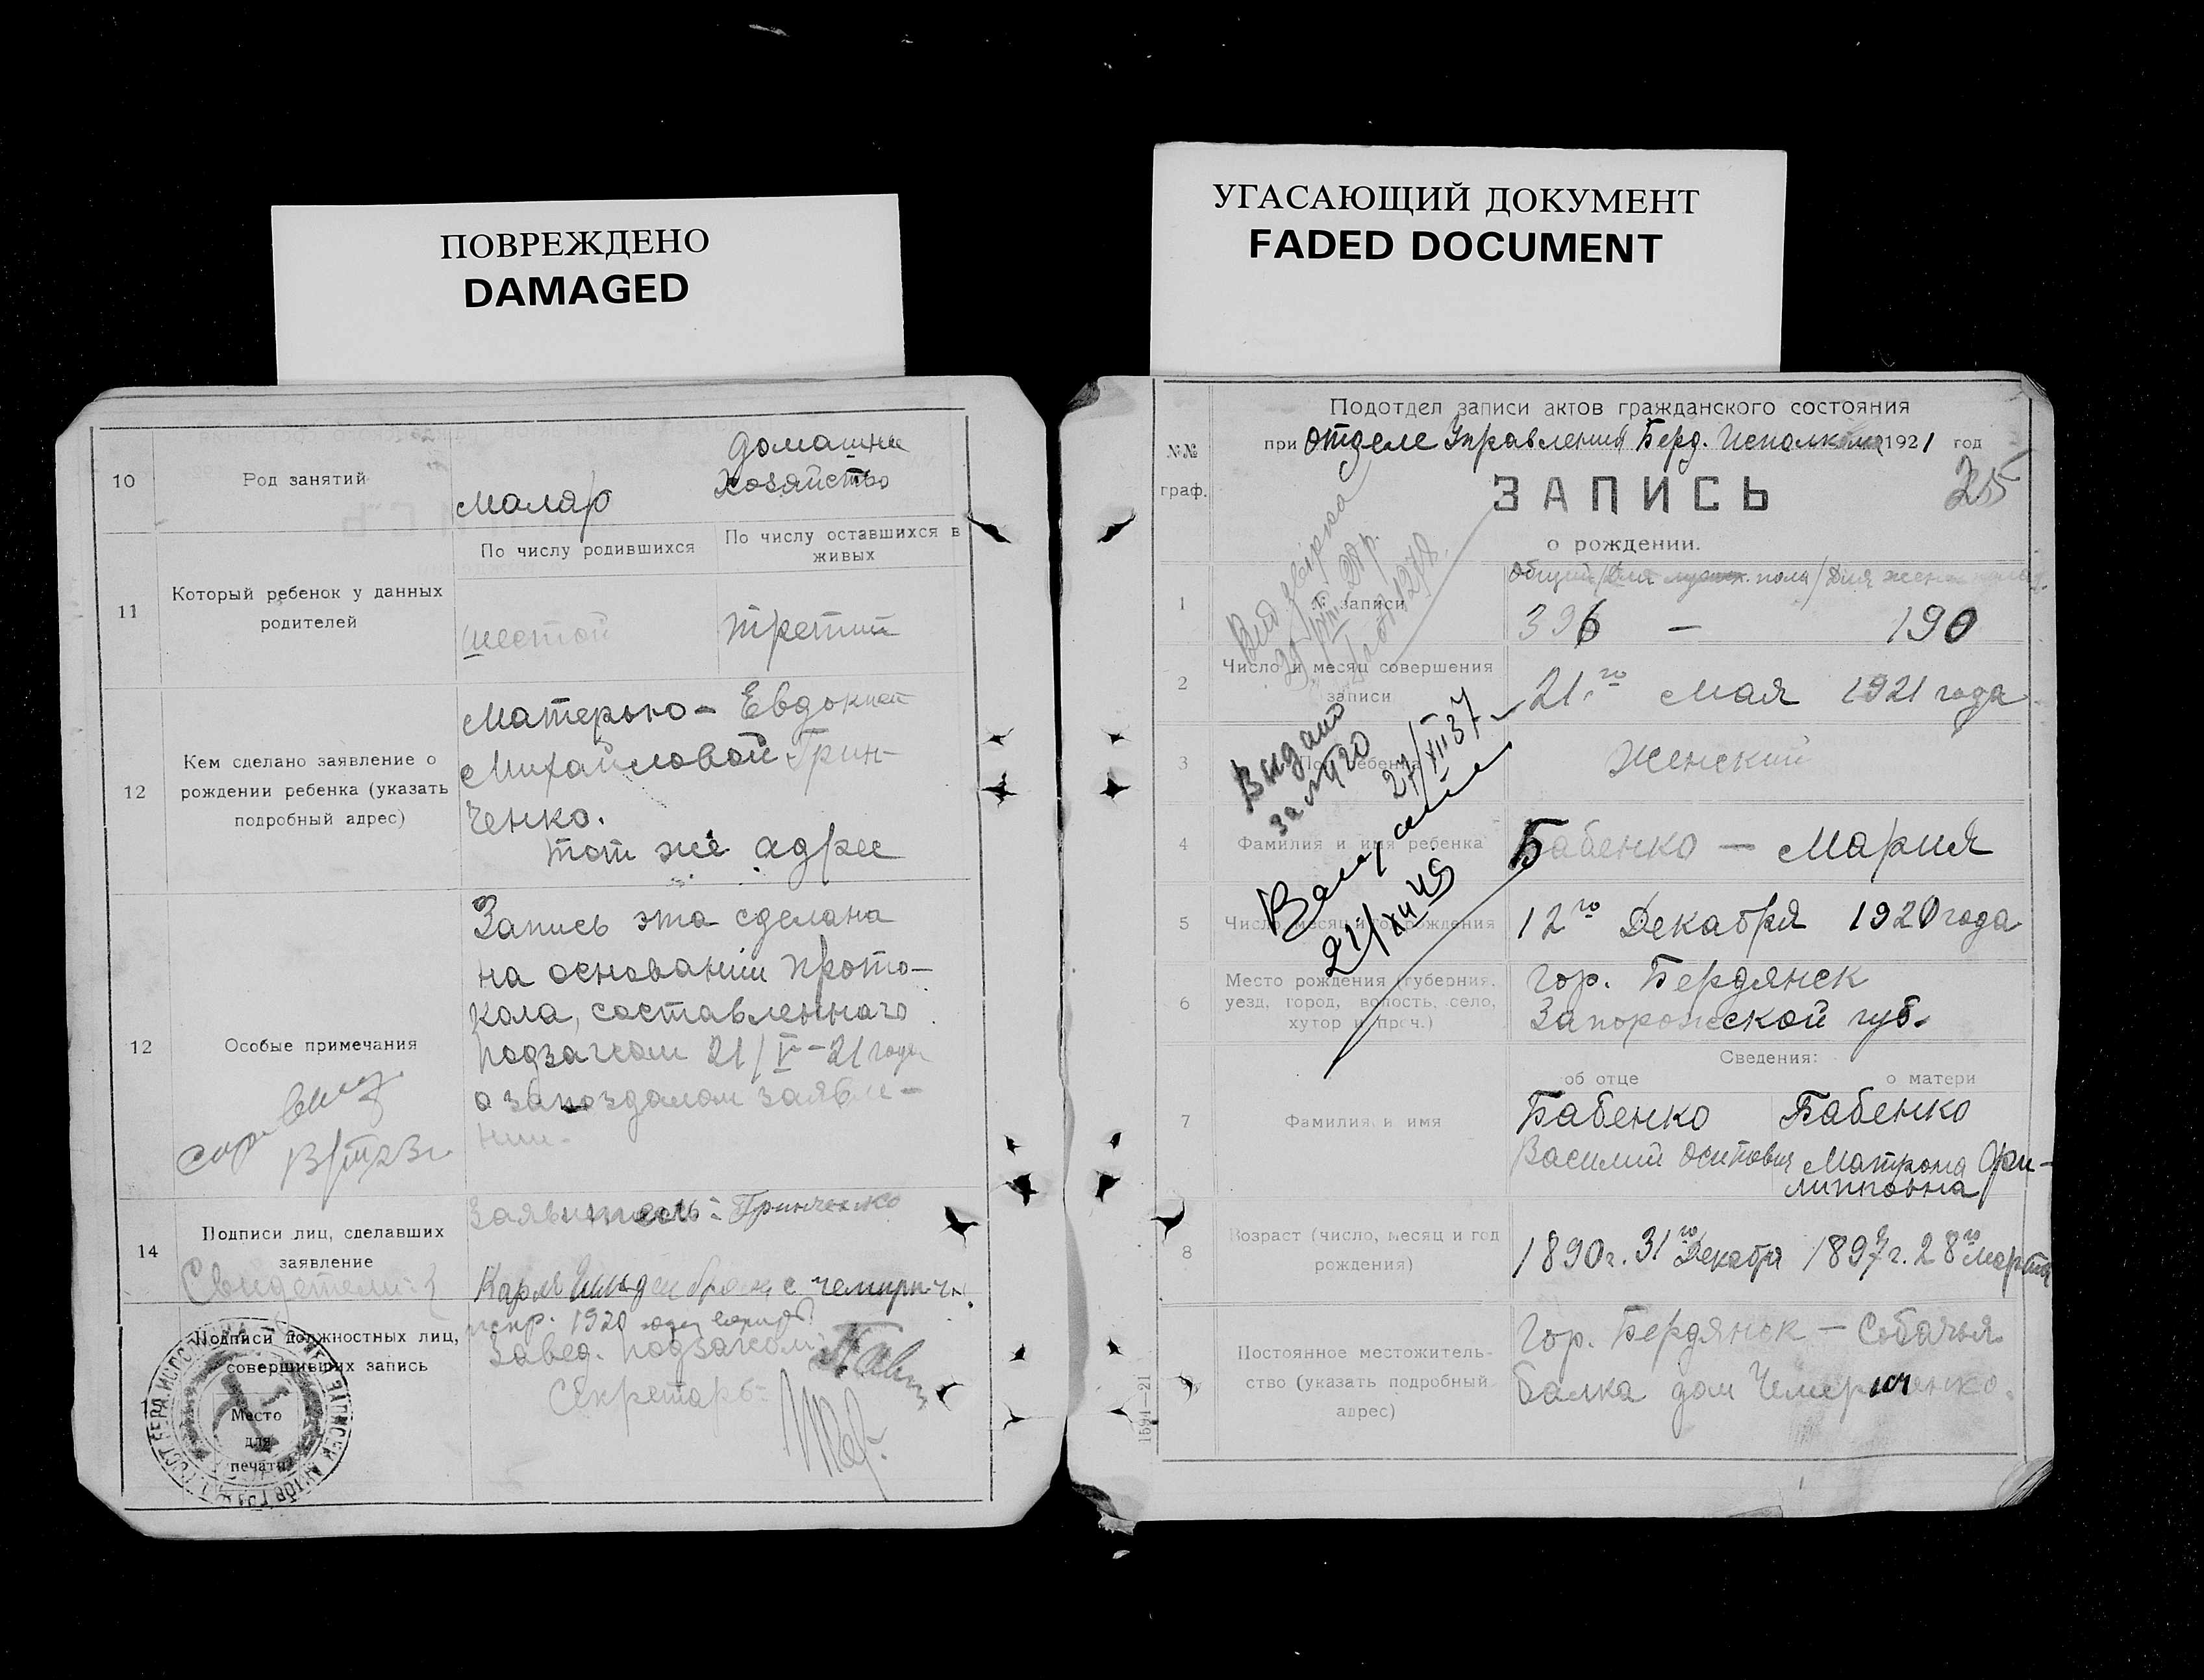 ПОВРЕЖДЕНО
DAMAGED
УГАСАЮЩИЙ ДОКУМЕНТ
FADED DOCUMENT
10
Род занятий
маляр
домашнее
хозяйство
11
Который ребенок у данных
родителей
По числу родившихся
По числу оставшихся в
живых
шестой
третий
12
Кем сделано заявление о
рождении ребенка (указать
подробный адрес)
Матерью - Евдокией
Михайловой Грин-
ченко.
тот же адрес
12
Особые примечания
Запись эта сделана
на основании прото-
кола, составленного
подзагсом 21/V-21 года
о запоздалом заявле-
нии.
14
Подписи лиц, сделавших
заявление
Свидетели:
Заявитель: Гринченко
Карл
1920
Подписи должностных лиц,
совершивших запись
Завед. подзагсом
Секретарь
Место
для
печати
№№
граф.
Подотдел записи актов гражданского состояния
при отделе Управления Берд. Исполкома 1921 год
ЗАПИСЬ
215
о рождении.
1
№ записи
общий/Для мужск. пола/Для женск
396 — 190
2
Число и месяц совершения
записи
21го Мая 1921 года
3
Пол ребенка
Женский
4
Фамилия и имя ребенка
Бабенко — Мария
5
Число, месяц и год рождения
12го Декабря 1920 года
6
Место рождения (губерния,
уезд, город, волость, село,
хутор и проч.)
гор. Бердянск
Запорожской губ.
Сведения:
об отце
о матери
7
Фамилия и имя
Бабенко
Василий Осипович
Бабенко
Матрона Фи-
липповна
8
Возраст (число, месяц и год
рождения)
1890г. 31го Декабря
1897г. 28го марта
9
Постоянное местожитель-
ство (указать подробный
адрес)
Гор. Бердянск — Собачья
балка дом
Видано
21/XII 37
21/XII 45
1591—21